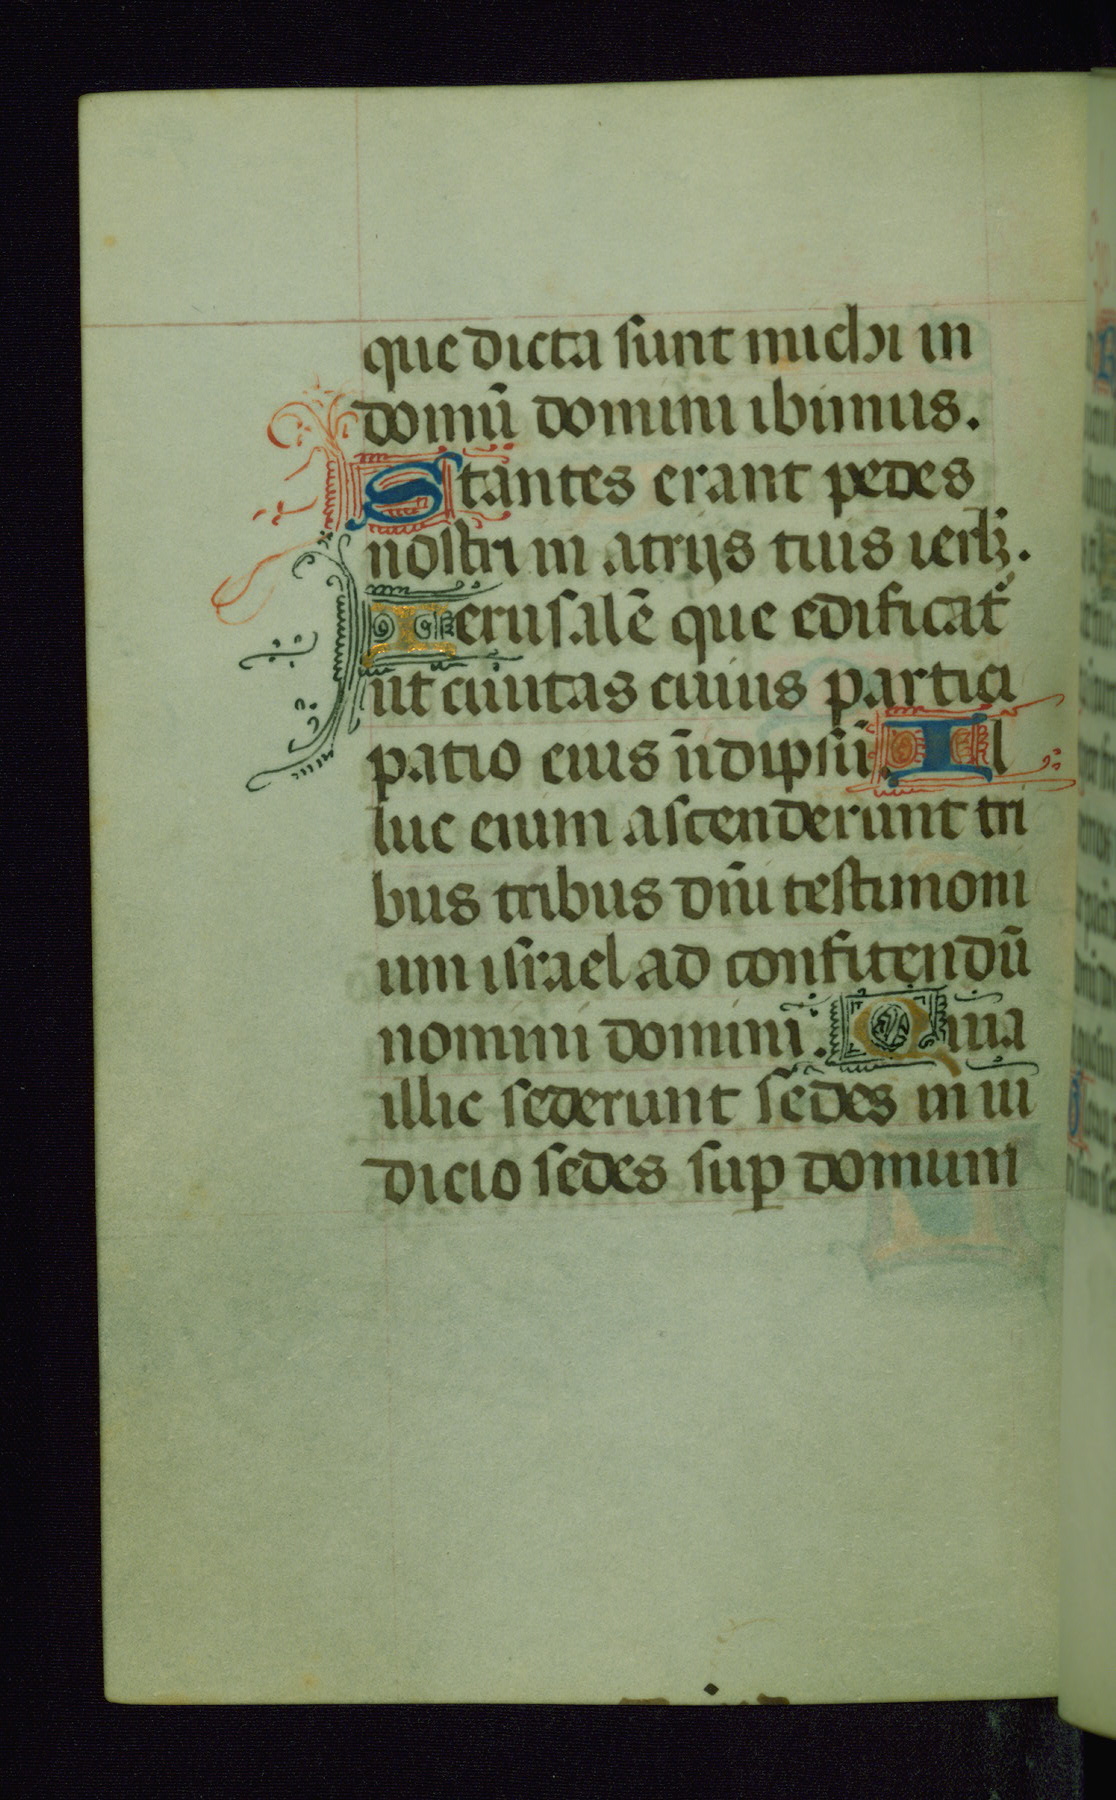 que dicta sunt michi in
domū domini ibimus.
Stantes erant pedes
nostri in atrijs tuis ierlꝫ.
Ierusalē que edificat᷑
ut ciuitas cuius partici
patio eius īidipsū. Il
luc enim ascenderunt tri
bus tribus dn̄i testimoni
um israel ad confitendū
nomini domini. Quia
illic sederunt sedes in iu
dicio sedes suꝑ domum